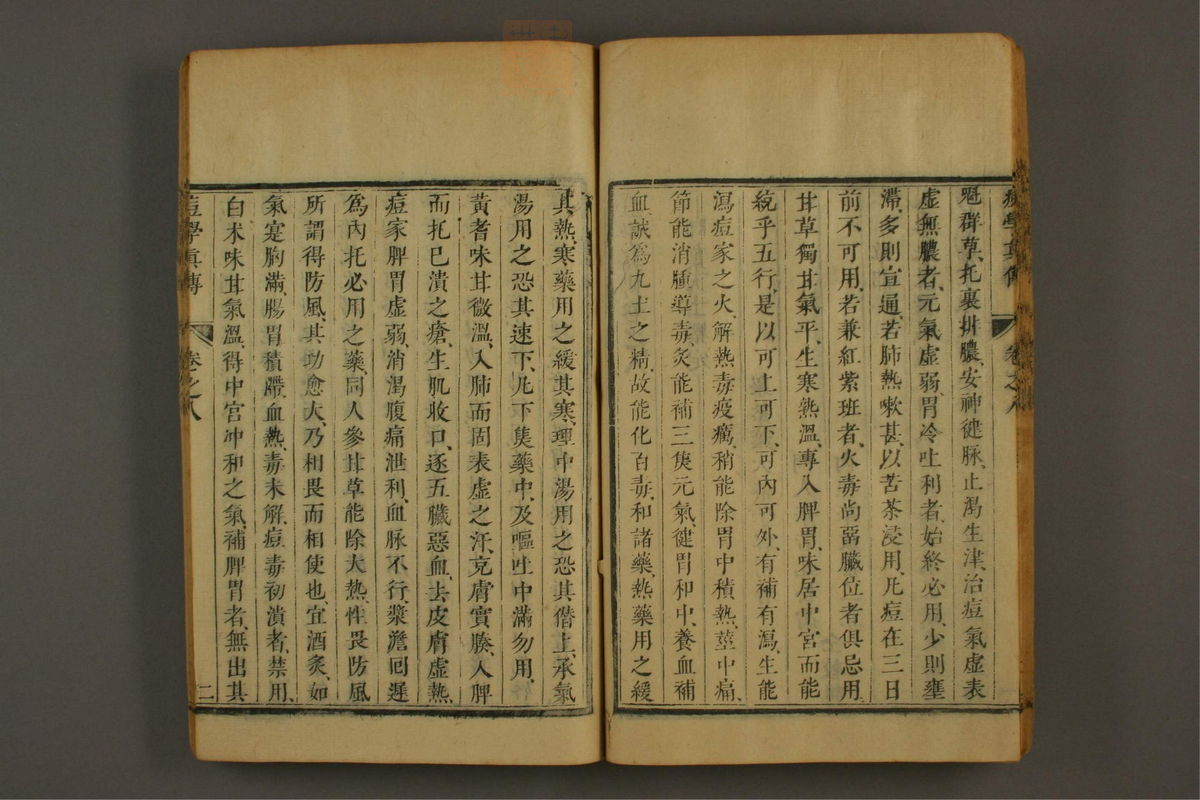 痘學真傳 卷之八
魁群草、托裏排膿、安神健脉、止渴生津、治痘氣虛表
虛無膿者、元氣虛弱、胃冷吐利者、始終必用、少則壅
滯、多則宣通、若肺熱嗽甚、以苦茶浸用、凡痘在三日
前不可用、若兼紅紫班者、火毒尚畱臟位者俱忌用、
甘草獨甘氣平、生寒熱溫、專入脾胃、味居中宮而能
統乎五行、是以可上可下、可內可外、有補有瀉、生能
瀉痘家之火、解熱毒疫癘、稍能除胃中積熱、莖中痛、
節能消腫導毒、炙能補三焦元氣、健胃和中、養血補
血、誠為九土之精、故能化百毒、和諸藥、熱藥用之緩
其熱、寒藥用之緩其寒、理中湯用之恐其僭上、承氣
湯用之恐其速下、凡下焦藥中、及嘔吐中滿勿用、
黃耆味甘微溫、入肺而固表虛之汗、充膚實腠、入脾
而托已潰之瘡、生肌收口、逐五臟惡血、去皮膚虛熱
痘家脾胃虛弱、消渴腹痛泄利、血脉不行、漿澹囘遲
為內托必用之藥、同人參甘草能除大熱、性畏防風
所謂得防風、其功愈大、乃相畏而相使也、宜酒炙、如
氣寔胸滿、腸胃積滯、血熱、毒未解、痘毒初潰者、禁用、
白朮味甘氣溫、得中宮冲和之氣、補脾胃者、無出其
痘學真傳 卷之八 二